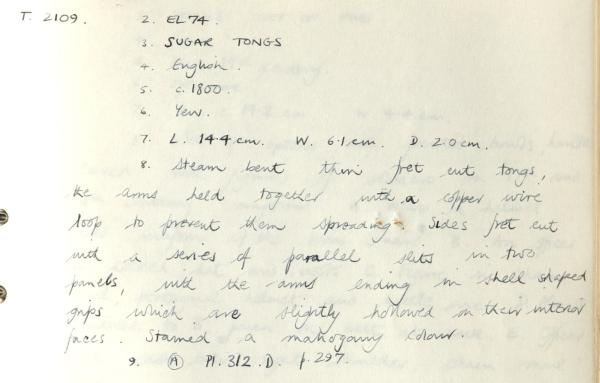 T. 2109. 2. EL74.
3. SUGAR TONGS
4. English.
5. c. 1800.
6. Yew.
7. L. 14.4 cm. W. 6.1 cm. D. 2.0 cm.
8. Steam bent thin fret cut tongs,
the arms held together with a copper wire
loop to prevent them spreading. Sides fret cut
with a series of parallel slits in two
panels, with the arms ending in shell shaped
grips which are slightly hollowed on their interior
faces. Stained a mahogany colour.
9. A Pl. 312. D. p. 297.